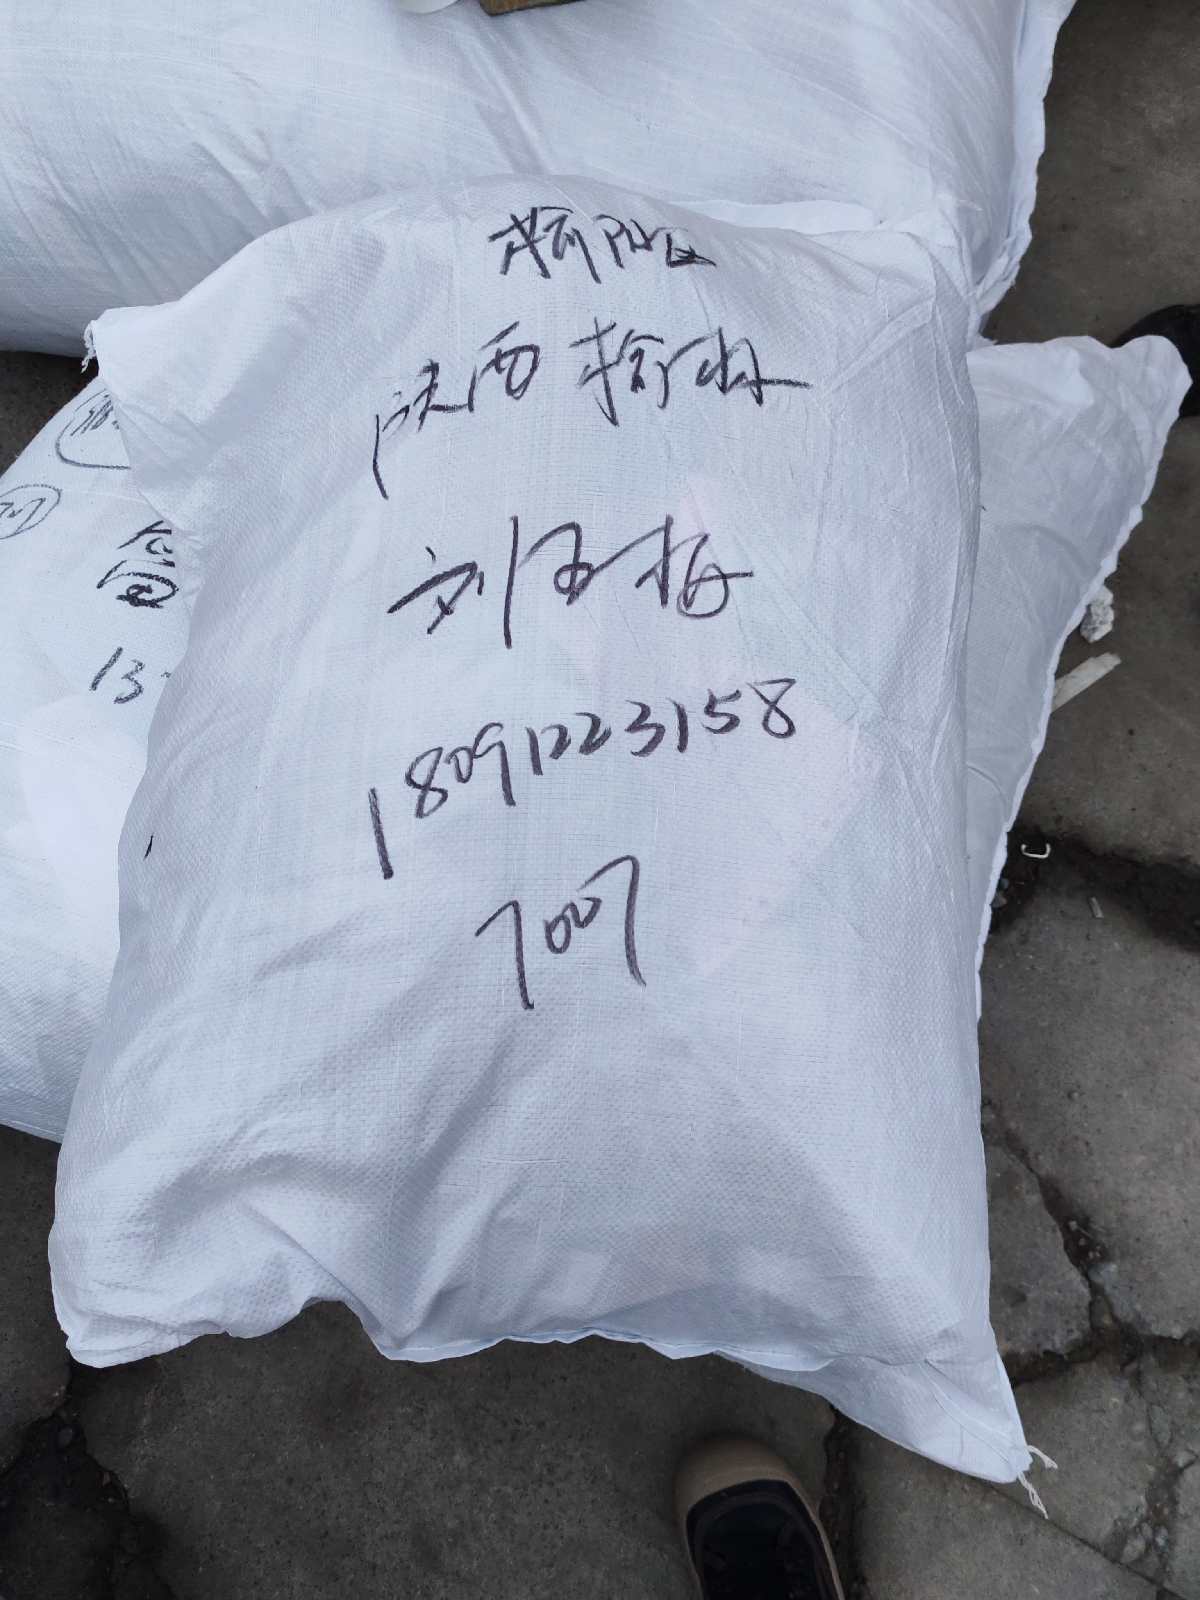 榆阳区
陕西榆林
刘玉梅
18091223158
7007
13